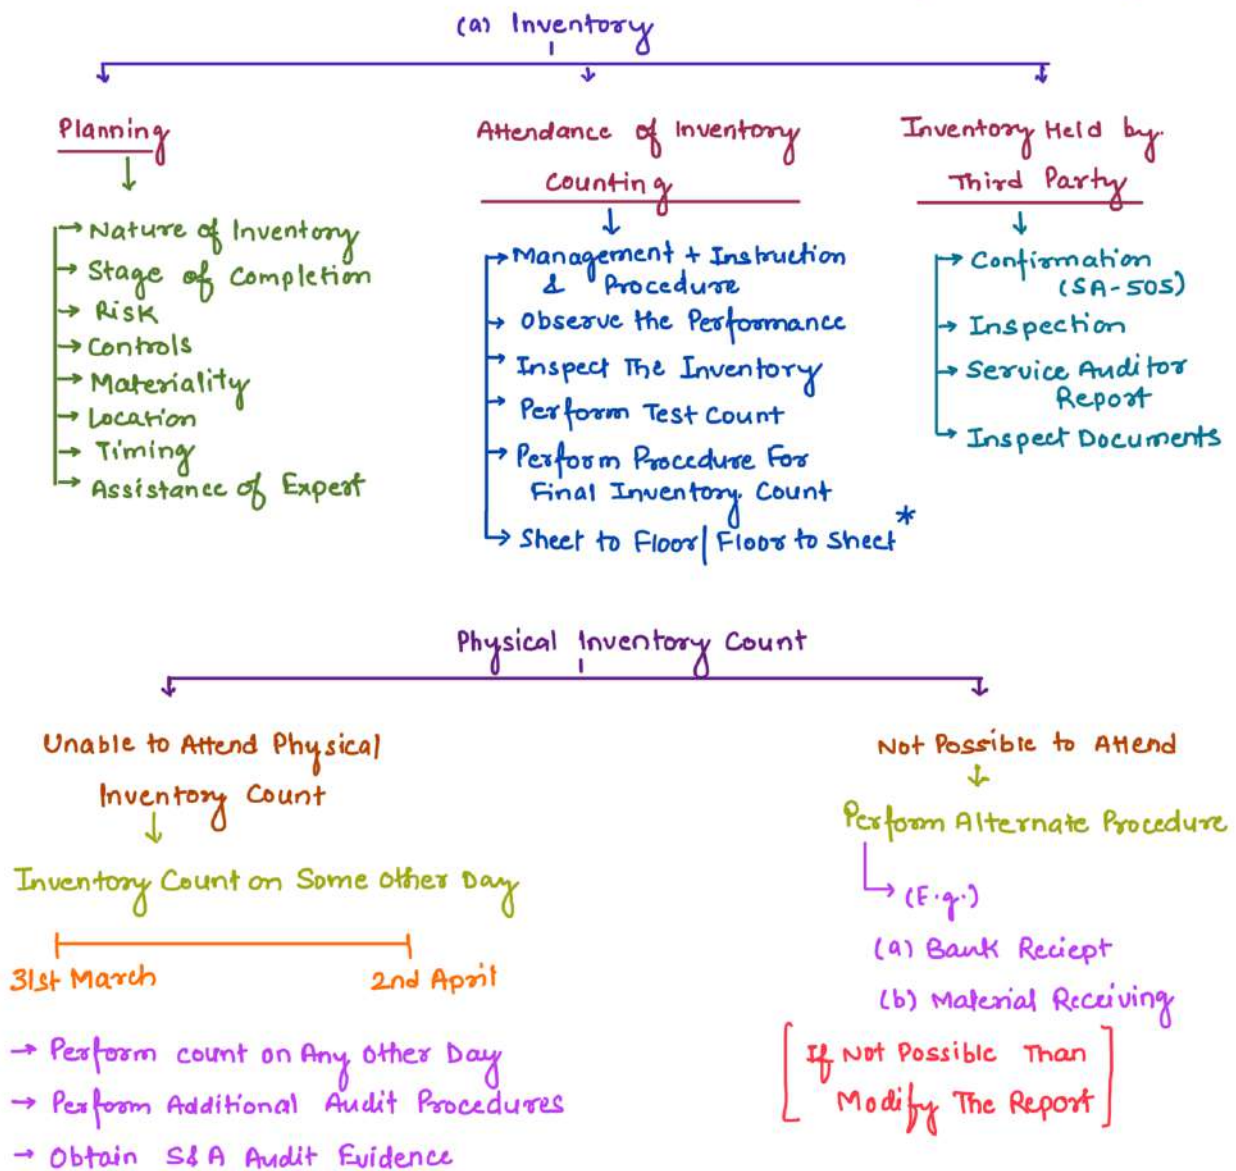 (a) Inventory
Planning
Nature of Inventory
Stage of Completion
Risk
Controls
Materiality
Location
Timing
Assistance of Expert
Attendance of Inventory
Counting
Management + Instruction
& Procedure
Observe the Performance
Inspect The Inventory
Perform Test Count
Perform Procedure For
Final Inventory Count
Sheet to Floor | Floor to Sheet *
Inventory Held by
Third Party
Confirmation
(SA-505)
Inspection
Service Auditor
Report
Inspect Documents
Physical Inventory Count
Unable to Attend Physical
Inventory Count
Inventory Count on Some other Day
31st March 2nd April
→ Perform count on Any other Day
→ Perform Additional Audit Procedures
→ Obtain S&A Audit Evidence
Not Possible to Attend
Perform Alternate Procedure
(E.g.)
(a) Bank Reciept
(b) Material Receiving
[If Not Possible Than
Modify The Report]